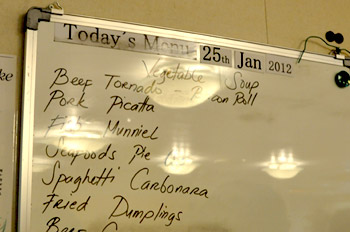 Today's Menu 25th Jan 2012
Vegetable Soup
Beef Tornado - Roll
Pork Picatta
Munniel
Seafoods Pie
Spaghetti Carbonara
Fried Dumplings